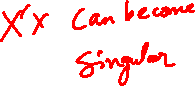 X'X can become
Singular